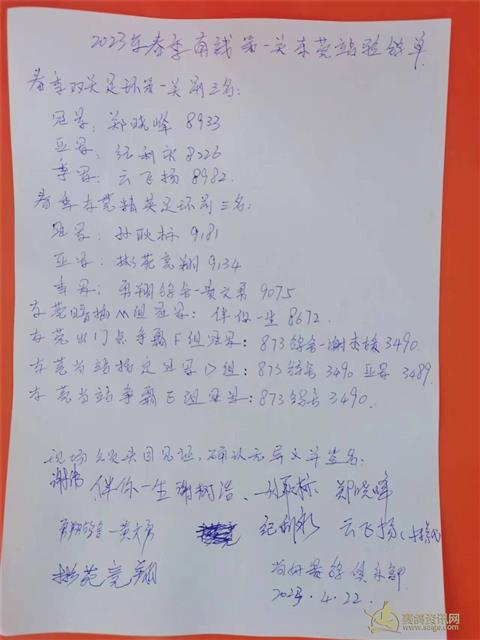 2023年春季南线第一关东莞站验鸽单
春季双关足环第一关前三名:
冠军: 郑晓峰 8933
亚军: 纪利永 8226
季军: 云飞扬 8982.
春季东莞精英足环前三名:
冠军: 孙耿标 9181
亚军: 彬苑竞翔 9134
季军: 勇翔鸽舍-黄文勇 9075
东莞暗插M组冠军: 伴你一生 8672.
东莞出门点争霸F组冠军: 873鸽舍-谢 3490.
东莞当站指定冠军D组: 873鸽舍 3490 亚军 3489.
东莞当站争霸E组冠军: 873鸽舍 3490.
现场 见证,确认无异义并签名:
伴你一生 谢树浩. 孙耿标 郑晓峰
勇翔鸽舍-黄文勇 纪利永 云飞扬
彬苑竞翔 俱乐部
2023.4.22.
赛鸽资讯网
www.saige.com